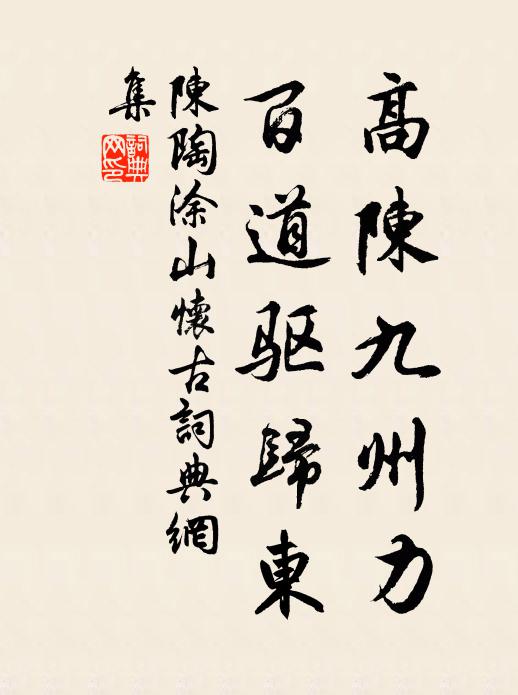 高陳九州力
百道驱歸東
陳陶涂山懷古詞典網
集
詞典
网印